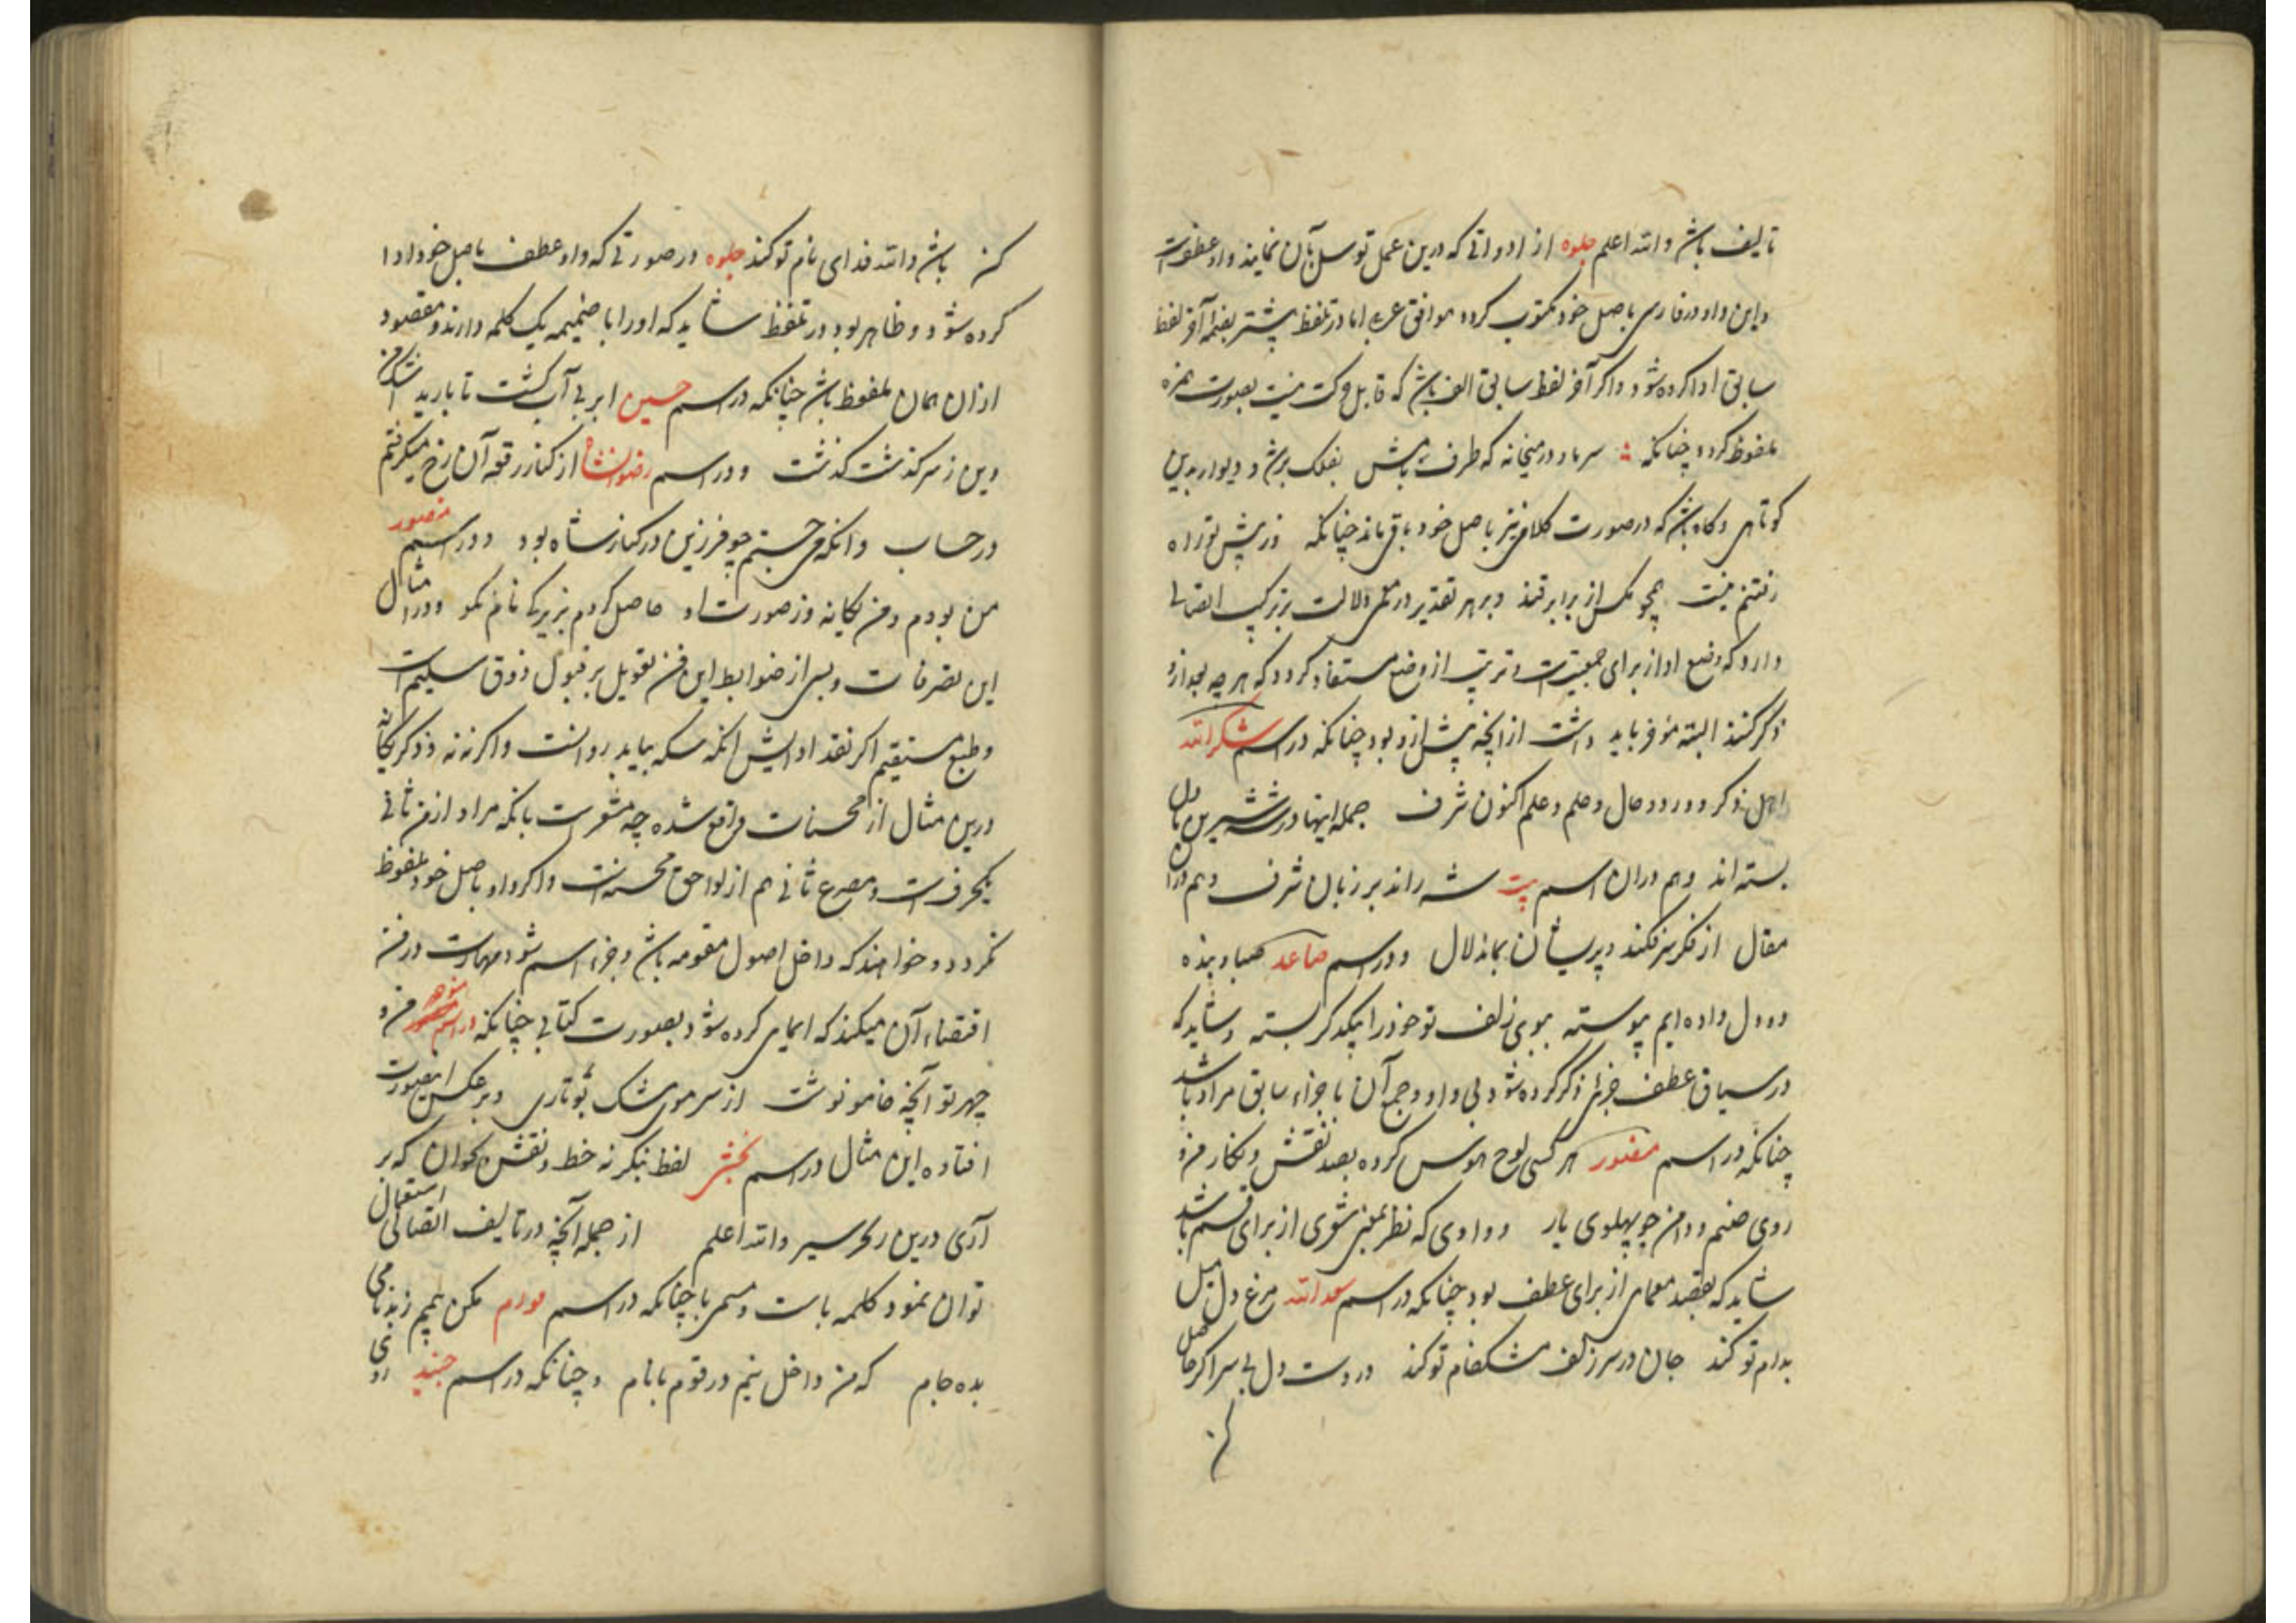 تالیف باشد والله اعلم جلوه از ادواتی که درین عمل توسل بآن نمایند واو عطفست
واین واو در فارسی باصل خود مکتوب کردد موافق عربی اما در تلفظ پیشتر بضم آخر لفظ
سابق ادا کرده شود واکر آخر لفظ سابق الف باشد که قابل حرکت نیست بصورت همزه
ملفوظ کردد چنانکه سر ما و در میخانه که طرف بامش بفلک بر شد و دیوار بدین
کوتاهی وکاه باشد که در صورت کلامی نیز باصل خود باقی ماند چنانکه وز پیش تو راه
رفتنم نیست همچو مکس از برابر قند وبر هر تقدیر در معمی دلالت بر ترکیب اتصالی
دارد که وضع او از برای جمعیتست و ترتیب از وضع مستفاد کردد که هر چه بعد ازو
ذکر کنند البته مؤخر باید داشت از آنچه پیش ازو بود چنانکه در اسم شکرالله
اهل ذکر و ورد و حال و حلم و علم اکنون شرف جمله اینها در شه شیرین
بسته اند وهم دران اسم بیت شه راند بر زبان شرف وهم در
مقال از فکر سر فکند و پریشان بماند لال ودر اسم صاعد صبا و بنده
دو دل داده ایم پیوسته ببوی زلف تو خود را بیکدکر بسته وشاید که
در سیاق عطف جزئی ذکر کرده شود بی واو وجمع آن باجزاء سابق مراد باشد
چنانکه در اسم مغفور هر کسی لوح هوس کرده بصد نقش و نکار من و
روی صنم و دامن جو پهلوی یار و واوی که نظر بمعنی شعری از برای قسم باشد
شاید که بقصد معمای از برای عطف بود چنانکه در اسم سعدالله مرغ دل میل
بدام تو کند جان در سر زلف مشکفام تو کند در دست دل بی سر اکر حاصل
کن
کن باشد والله فدای نام تو کند جلوه در صورتی که واو عطف باصل خود ادا
کرده شود وظاهر بود در تلفظ شاید که اورا با ضمیمه یک کلمه دارند و مقصود
ازان همان ملفوظ باشد چنانکه در اسم حسین ابر بی آب کشت تا بارید
وین ز سر کذشت کذشت ودر اسم رضوانشاه از کنار رقعه آن رخ میکرفتم
در حساب وانکه می جستم چو فرزین در کنار شاه بود ودر اسم منصور
من بودم و من یکانه وز صورت او حاصل کردم بزیرکی نام نکو ودر امثال
این تصرفات و بسی از ضوابط این فن تعویل بر قبول ذوق سلیمست
وطبع مستقیم اکر نقد ادایش انکه سکه بیابد رواست واکر نه نه وذکر یکانه
درین مثال از محسنات واقع شده چه مشعرست بانکه مراد از من ثانی
یکحرفست ومصرع ثانی هم از لواحق محسنه است واکر واو باصل خود ملفوظ
نکردد و خواهند که داخل اصول مقومه باشد و جزء اسم شود مهارت در فن
اقتضاء آن میکند که ایمای کرده شود بصورت کتابی چنانکه در اسم منوچهر من و
چهر تو آنچه خامه نوشت از سر موی مشک بو تاری وبر عکس اینصورت
افتاده این مثال در اسم بخشش لفظ بنکر نه خط و نقش بخوان که بر
آری درین رکر سیر والله اعلم از جمله آنچه در تالیف اتصالی استعمال
توان نمود کلمه باست و مسمی با چنانکه در اسم مودم مکن بیم ز بدنامی
بده جام که من داخل نیم در قوم با نام وچنانکه در اسم جنید